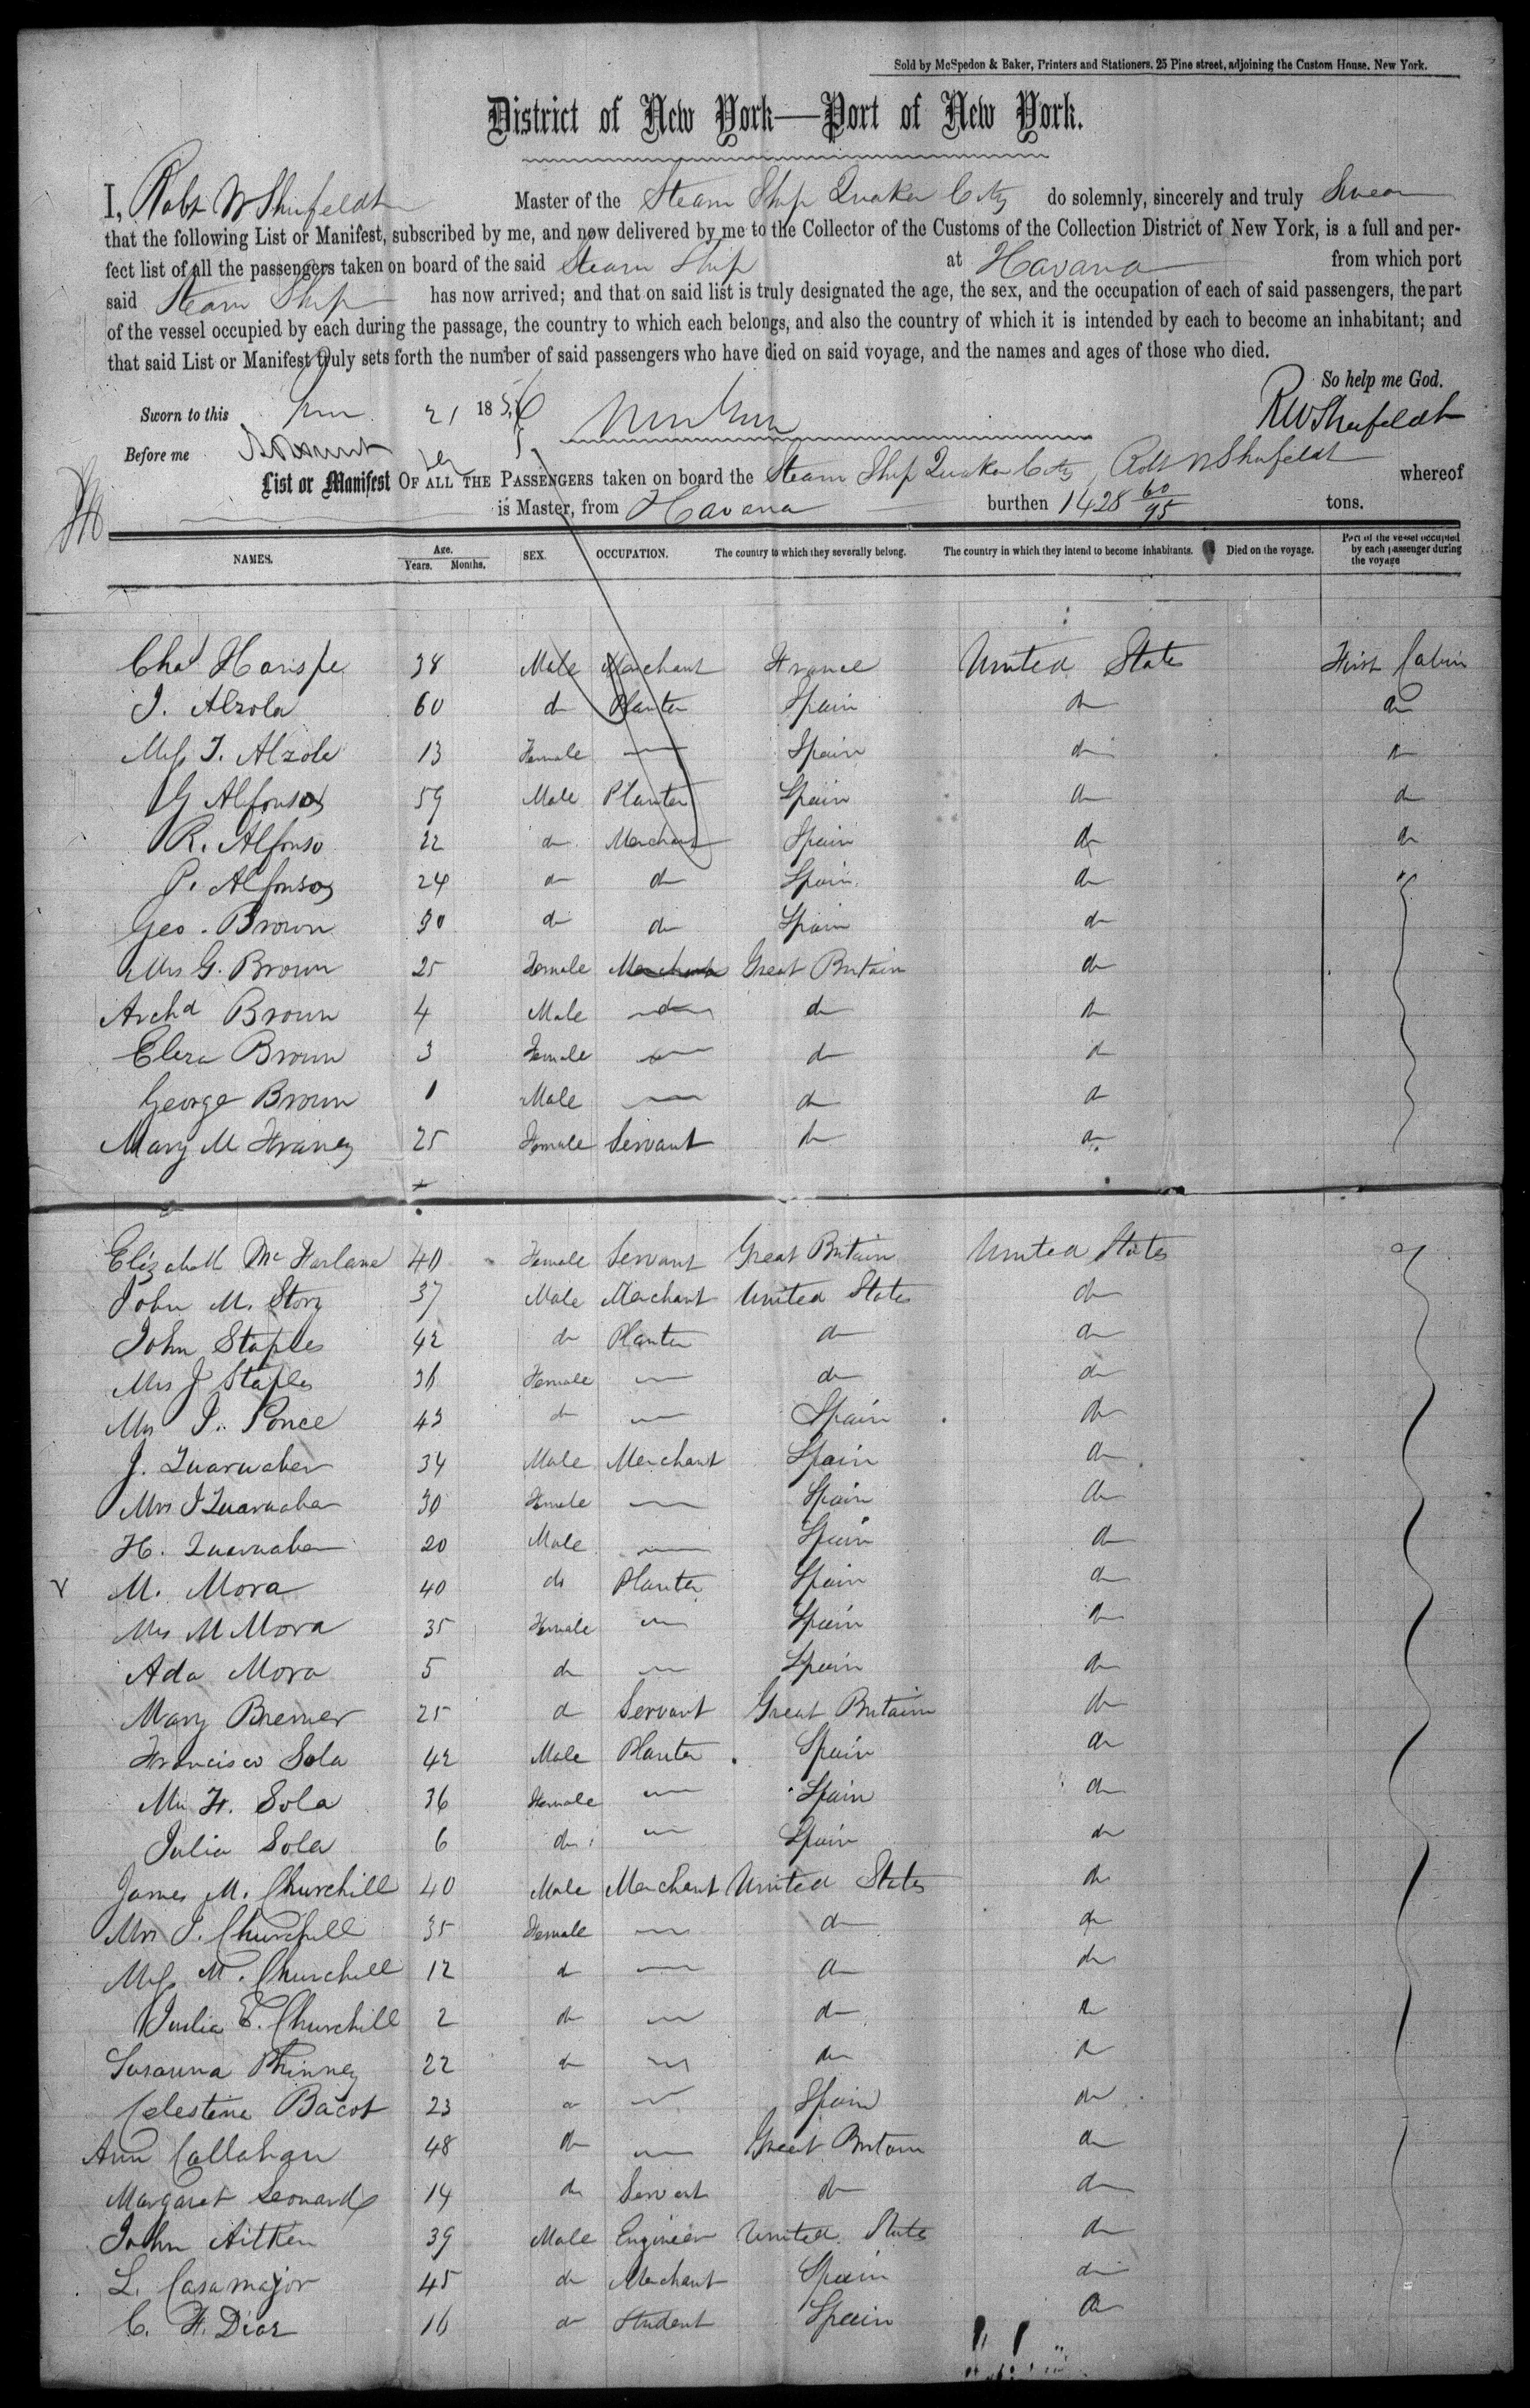 Sold by McSpedon & Baker, Printers and Stationers, 25 Pine street, adjoining the Custom House. New York.
District of New York—Port of New York.
I, Robt W Shufeldt Master of the Steam Ship Quaker City do solemnly, sincerely and truly Swear
that the following List or Manifest, subscribed by me, and now delivered by me to the Collector of the Customs of the Collection District of New York, is a full and per-
fect list of all the passengers taken on board of the said Steam Ship at Havana from which port
said Steam Ship has now arrived; and that on said list is truly designated the age, the sex, and the occupation of each of said passengers, the part
of the vessel occupied by each during the passage, the country to which each belongs, and also the country of which it is intended by each to become an inhabitant; and
that said List or Manifest truly sets forth the number of said passengers who have died on said voyage, and the names and ages of those who died.
So help me God.
Sworn to this 21 1856 RW Shufeldt
Before me
List or Manifest OF ALL THE PASSENGERS taken on board the Steam Ship Quaker City, Robt W Shufeldt whereof
is Master, from Havana burthen 1428 60/95 tons.
NAMES. Age. Years. Months. SEX. OCCUPATION. The country to which they severally belong. The country in which they intend to become inhabitants. Died on the voyage. Part of the vessel occupied by each passenger during the voyage
Chas Harispe 38 Male Merchant France United States First Cabin
J. Alzola 60 do Planter Spain do do
Miss J. Alzola 13 Female — Spain do do
G Alfonso 59 Male Planter Spain do do
R. Alfonso 22 do Merchant Spain do do
P. Alfonso 24 do do Spain do "
Geo. Brown 30 do do Spain do
Mrs G. Brown 25 Female Merchant Great Britain do
Archd Brown 4 Male do do do
Eliza Brown 3 Female — do do
George Brown 1 Male — do do
Mary M Franey 25 Female Servant do do
Elizabeth McFarlane 40 Female Servant Great Britain United States
John M. Story 37 Male Merchant United States do
John Staples 42 do Planter do do
Mrs J Staples 36 Female — do do
Mrs J. Ponce 43 do — Spain do
J. 34 Male Merchant Spain do
Mrs J 30 Female — Spain do
H. 20 Male — Spain do
M. Mora 40 do Planter Spain do
Mrs M Mora 35 Female — Spain do
Ada Mora 5 do — Spain do
Mary Bremer 25 do Servant Great Britain do
Francisco Sola 42 Male Planter Spain do
Mrs F. Sola 36 Female — Spain do
Julia Sola 6 do — Spain do
James M. Churchill 40 Male Merchant United States do
Mrs J. Churchill 35 Female — do do
Miss M. Churchill 12 do — do do
Julia E. Churchill 2 do — do do
Susanna Phinney 22 do — do do
Celestine Bacot 23 do — Spain do
Ann Callahan 48 do — Great Britain do
Margaret Leonard 14 do Servant do do
John Aitken 39 Male Engineer United States do
L. Casamajor 45 do Merchant Spain do
C. F. Diaz 16 do Student Spain do